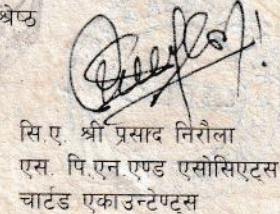 श्रेष्ठ
सि.ए. श्री प्रसाद निरौला
एस. पि.एन.एण्ड एसोसिएट्स
चार्टड एकाउन्टेण्ट्स